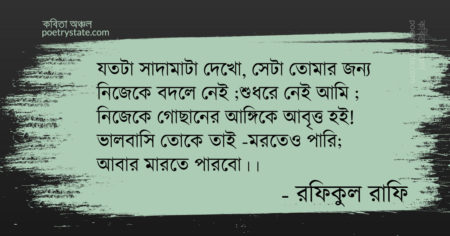 কবিতা অঞ্চল
poetrystate.com
যতটা সাদামাটা দেখো, সেটা তোমার জন্য
নিজেকে বদলে নেই ;শুধরে নেই আমি ;
নিজেকে গোছানের আঙ্গিকে আবৃত্ত হই!
ভালবাসি তোকে তাই -মরতেও পারি;
আবার মারতে পারবো।।
- রফিকুল রাফি